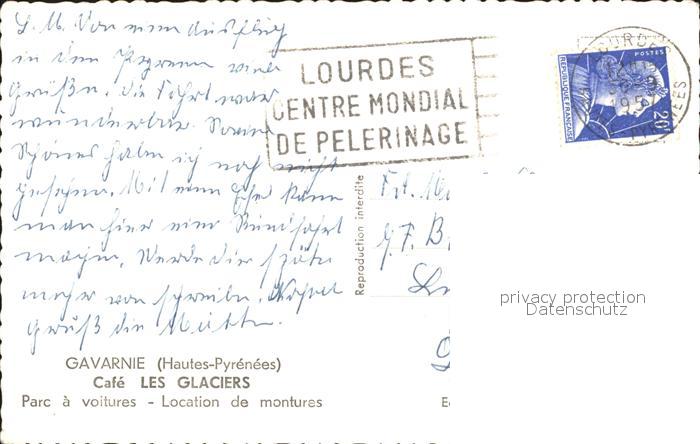 L. M. Von einem Ausflug
in den Pyrenäen viele
Grüße. Die Fahrt war
wunderbar. So was
Schönes habe ich noch nicht
gesehen. Mit einem kann
man hier eine Rundfahrt
machen. Werde dir später
mehr von schreiben.
Gruß die Mutter.
LOURDES
CENTRE MONDIAL
DE PELERINAGE
POSTES
REPUBLIQUE FRANÇAISE
20F
Reproduction interdite
Frl.
privacy protection
Datenschutz
GAVARNIE (Hautes-Pyrénées)
Café LES GLACIERS
Parc à voitures - Location de montures